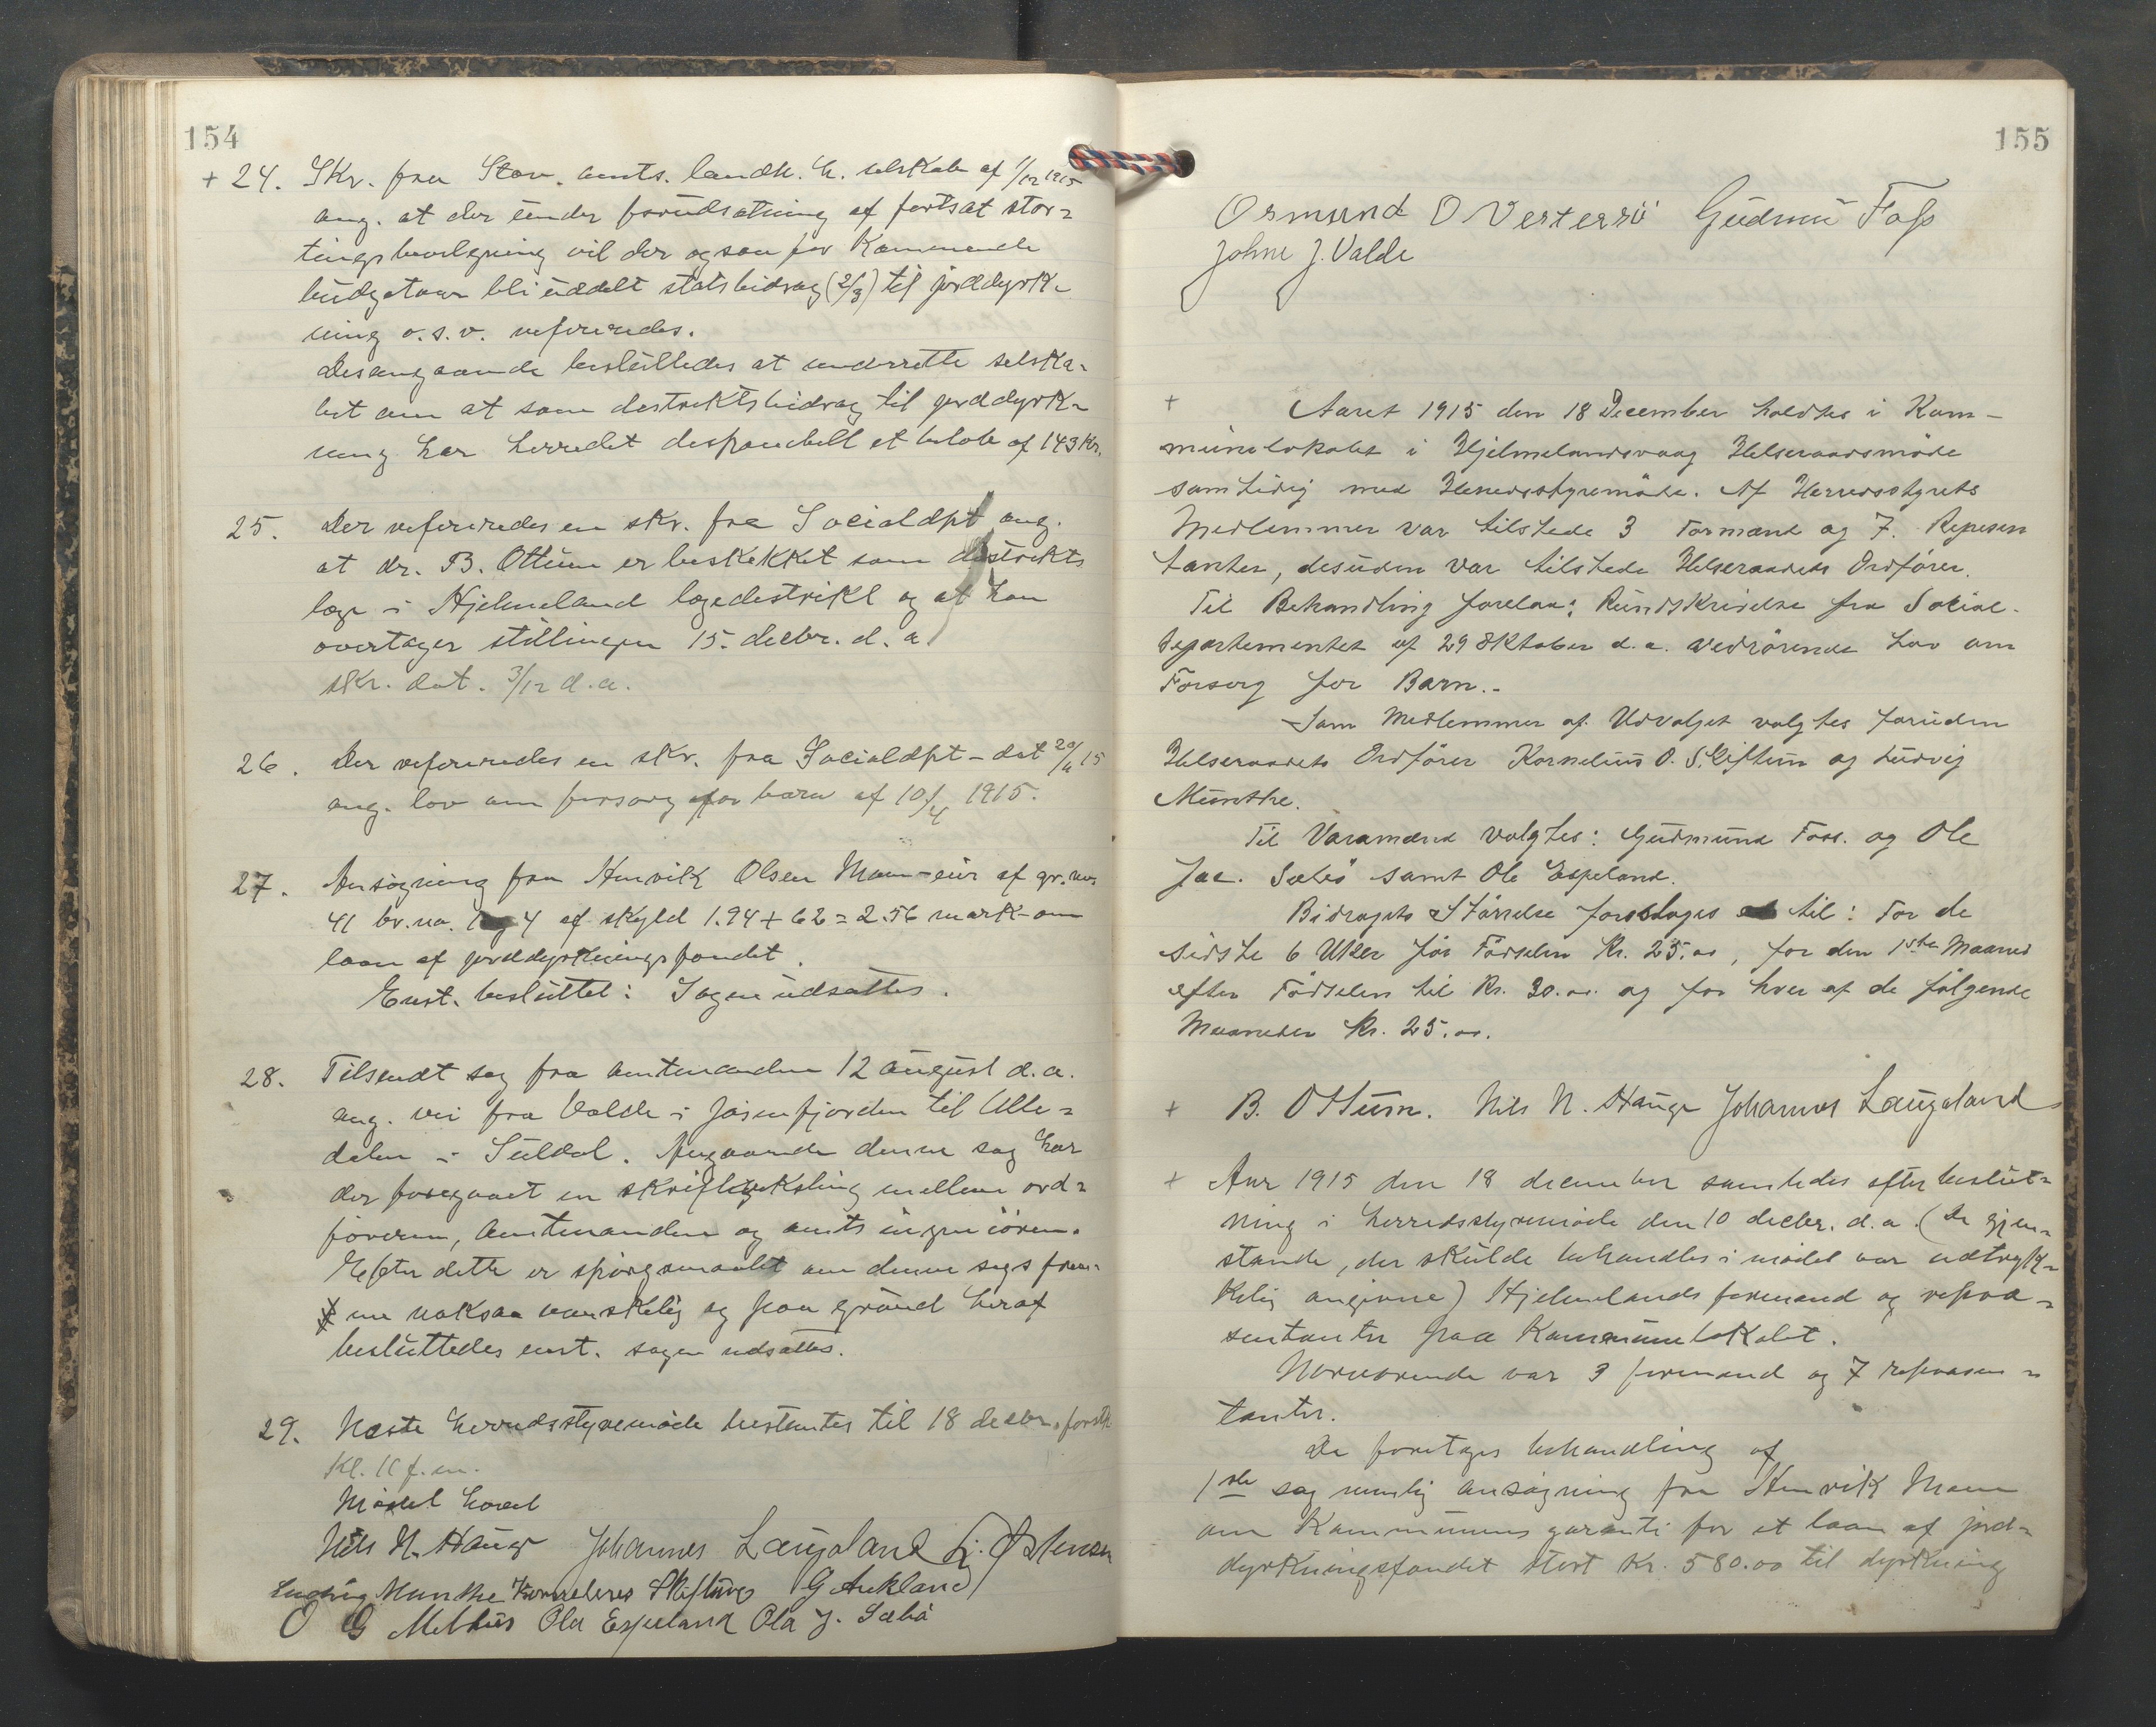 154
+ 24. Skr. fra Stav. amts. landh. h. selskab af 1/12 1915
ang. at der under forudsætning af fortsat stor=
tingsbevilgning vil der ogsaa for kommende
budgetaar bli uddelt statsbidrag (2/3) til jorddyrk=
ning o.s.v. refereredes.
Desangaaende besluttedes at underrette selska=
bet om at som destriktsbidrag til jorddyrk=
ning har herredet desponibelt et beløb af 143 Kr.
25. Der refereredes en skr. fra Socialdpt ang.
at dr. B. Ottum er beskikket som destrikts
læge i Hjelmeland lægedestrikt og at han
overtager stillingen 15. decbr. d. a
skr. dat. 3/12 d.a.
26. Der refereredes en skr. fra Socialdpt - dat 15
ang. lov om forsorg for barn af 10/4 1915.
27. Ansøgning fra Henrik Olsen Maan - eier af gr. no
41 br. no. 1 og 4 af skyld 1.94 + 62 = 2.56 mark - om
laan af jorddyrkningsfondet.
Enst. besluttet: Sagen udsættes.
28. Tilsendt sag fra amtmanden 12 august d.a.
ang. vei fra Valde i Jøsenfjorden til Ulle=
dalen i Suldal. Angaaende denne sag har
der foregaaet en skriftveksling mellem ord=
føreren, amtmanden og amtsingeniøren.
Efter dette er spørgsmaalet om denne sags frem=
me noksaa vanskelig og paa grund heraf
besluttedes enst. sagen udsættes.
29. Næste herredsstyremøde bestemtes til 18 decbr. førstk
Kl. 11 f.m.
Mødet hævet
Nils N. Hauge Johannes Laugaland L. Østensen
Ludvig Munthe Kornelius Skiftun G Aukland
O G Melhus Ola Espeland Ola J. Sæbø
155
Osmund O Vestersjø Gudmu Foss
Johne J. Valde
+ Aaret 1915 den 18 December holdtes i Kom-
munelokalet i Hjelmelandsvaag Helseraadsmøde
samtidig med Herredsstyremøde. Af Herredsstyrets
Medlemmer var tilstede 3 Formænd og 7. Repesen
tanter, desuden var tilstede Helseraadets Ordfører.
Til Behandling forelaa: Rundskrivelse fra Social-
departementet af 29 Oktober d.a. vedrørende Lov om
Forsorg for Barn.-
Som Medlemmer af Udvalget valgtes foruden
Helseraadets Ordfører Kornelius O. Skiftun og Ludvig
Munthe.
Til Varamænd valgtes: Gudmund Foss. og Ole
Jac. Sæbø samt Ole Espeland.
Bidragets Størrelse foresloges til: For de
sidste 6 Uker før Fødselen Kr. 25.00, for den 1ste Maaned
efter Fødselen til Kr. 30.00 og for hver af de følgende
Maaneder Kr. 25.00.
+ B. Ottum. Nils N. Hauge Johannes Laugaland
+ Aar 1915 den 18 december samledes efter beslut=
ning i herredsstyremøde den 10 decbr. d.a. (De gjen=
stande, der skulde behandles i mødet var udtryk=
kelig angivne) Hjelmelands formænd og repræ=
sentanter paa Kommunelokalet.
Nærværende var 3 formænd og 7 repræsen=
tanter.
De foretoges behandling af
1ste sag nemlig ansøgning fra Henrik Maan
om Kommunens garanti for et laan af jord=
dyrkningsfondet stort Kr. 580.00 til dyrkning